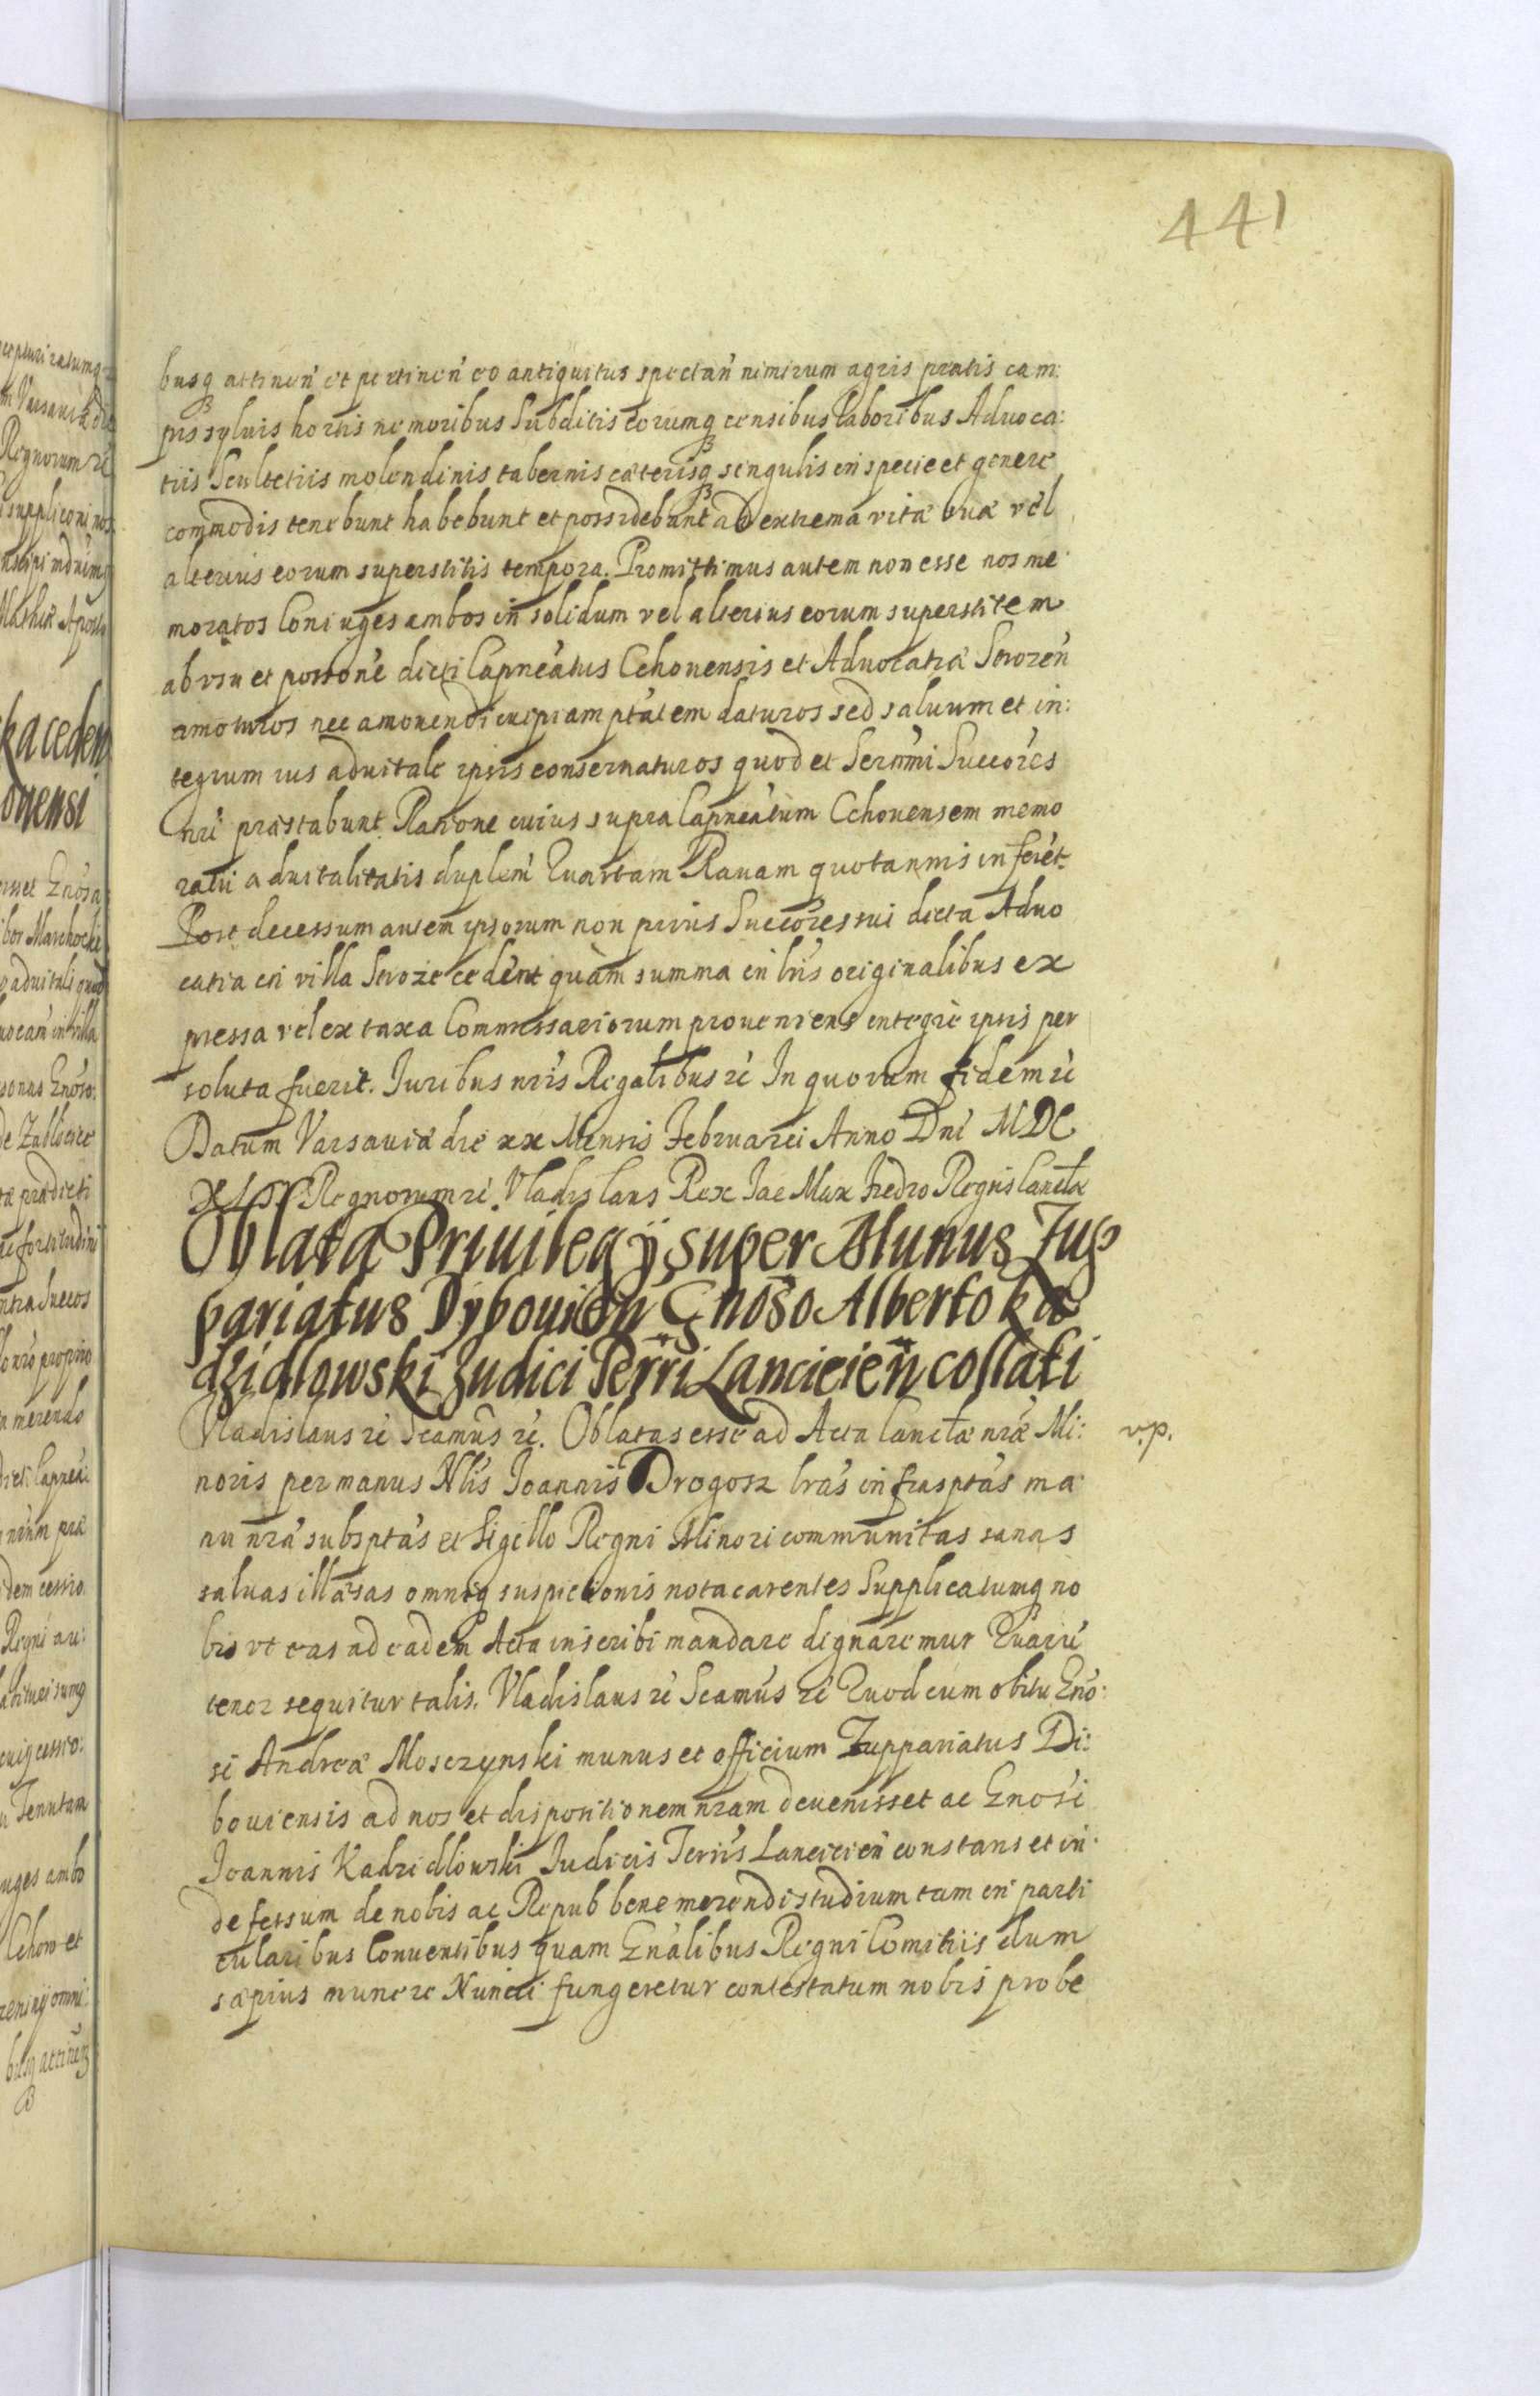 441
busq attinen̄ et pertinen̄ eo antiquitus spectan̄ nimirum agris pratis cam:
pis syluis hortis nemoribus Subditis eorumq censibus laboribus Aduoca:
tiis Scultetiis molendinis tabernis cæterisq singulis in specie et genere
commodis tenebunt habebunt et possidebunt ad extrema vitæ suæ vel
alterius eorum superstitis tempora. Promittimus autem non esse nos me
moratos Coniuges ambos in solidum vel alterius eorum superstitem
ab vsu et possone dicti Capneatus Cchouensis et Aduocatiæ Strozen̄
amoturos nec amouendi cuipiam ptatem daturos sed saluum et in:
tegrum ius aduitale ipsis conseruaturos quod et Sernmi Succores
nri præstabunt. Ratione cuius supra Capneatum Cchouensem memo
ratii aduitalitatis duplem Quartam Rauam quotannis inferet.
Post decessum autem ipsorum non prius Succores sui dicta Aduo
catia in villa Stroze cedent quàm summa in lris originalibus ex
pressa vel ex taxa Commissariorum proueniens integrè ipsis per
soluta fuerit. Juribus nris Regalibus rc In quorum fidem rc
Datum Varsauiæ die xx Mensis Februarii Anno Dni MDC
Regnorum rc. Vladislaus Rex Jac Max Fredro Regnis Canclæ
Oblata Priuilegÿ super Munus Zup
pariatus Dybouien̄ Gnoso Alberto Ka
dzidlowski Judici Terri Lancicien̄ collati
Vladislaus rc Scamus rc. Oblatas esse ad Acta Canclæ nræ Mi:
v.p.
noris per manus Nlis Joannis Drogosz lras infrasptas ma
nu nra subsptas et Sigillo Regni Minori communitas sanas
saluas illæsas omniq suspicionis nota carentes Supplicatumq no
bis vt eas ad eadem Acta inscribi mandare dignaremur Quarū
tenor sequitur talis. Vladislaus rc Scamus rc Quod cum obitu Gno:
si Andreæ Mosczynski munus et officium Zuppariatus Di:
bouiensis ad nos et dispositionem nram deuenisset ac Gnosi
Joannis Kadzidlowski Judicis Terris Lancicien̄ constans et in
defessum de nobis ac Repub bene merendi studium tam in parti
cularibus Conuentibus quam Gnalibus Regni Comitiis dum
sæpius munere Nuncii fungeretur contestatum nobis probe